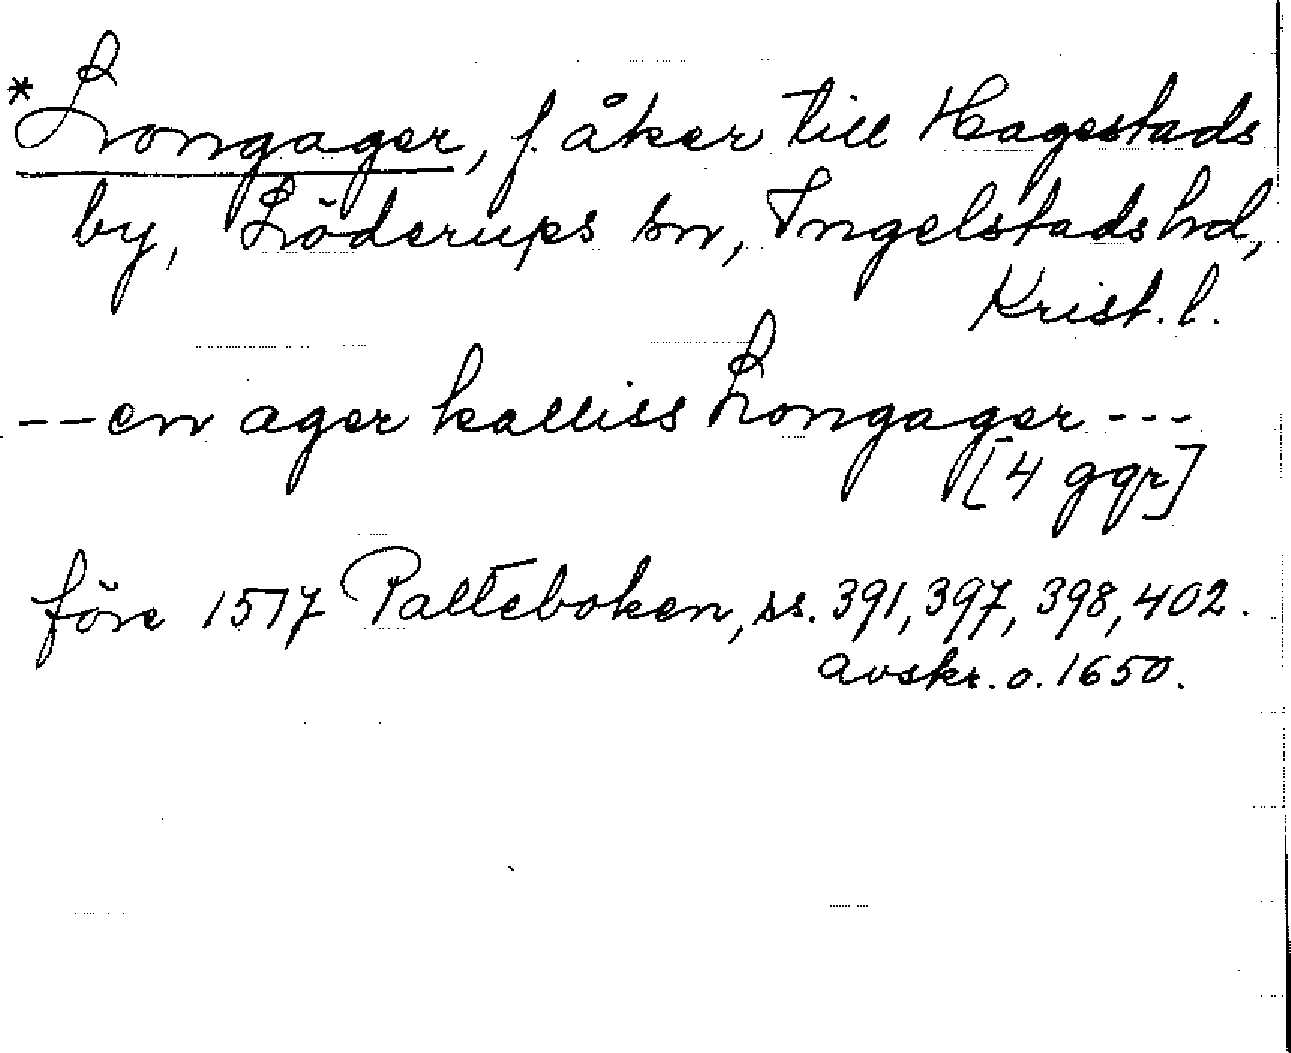 *Longager, f. åker till Hagestads
by, Löderups sn, Ingelstads hd,
Krist. l.
--en ager kalliss Longager---
[4 ggr]
före 1517 Palteboken, ss. 391, 397, 398, 402.
avskr. o. 1650.